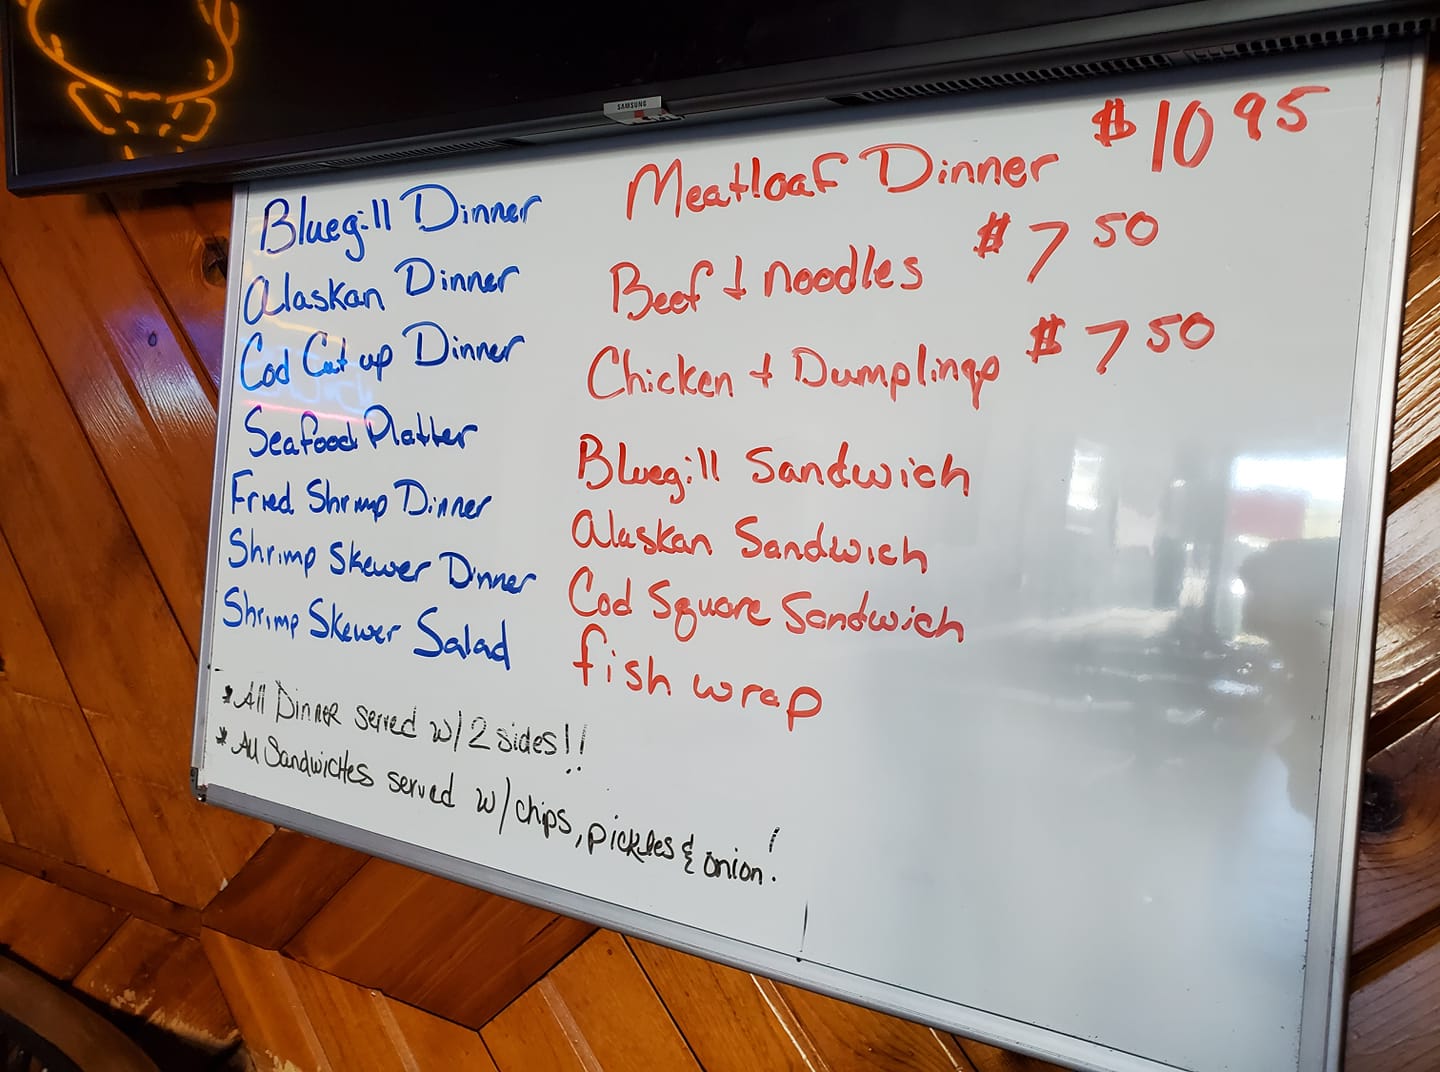 SAMSUNG
Bluegill Dinner
Alaskan Dinner
Cod Cut up Dinner
Seafood Platter
Fried Shrimp Dinner
Shrimp Skewer Dinner
Shrimp Skewer Salad
Meatloaf Dinner $10 95
Beef + noodles $7 50
Chicken + Dumplings $7 50
Bluegill Sandwich
Alaskan Sandwich
Cod Square Sandwich
fish wrap
*All Dinner served w/ 2 sides!!
*All Sandwiches served w/ chips, pickles & onion!